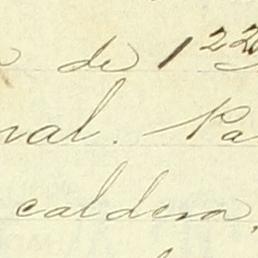 de 1
nal. Pa
caldera,